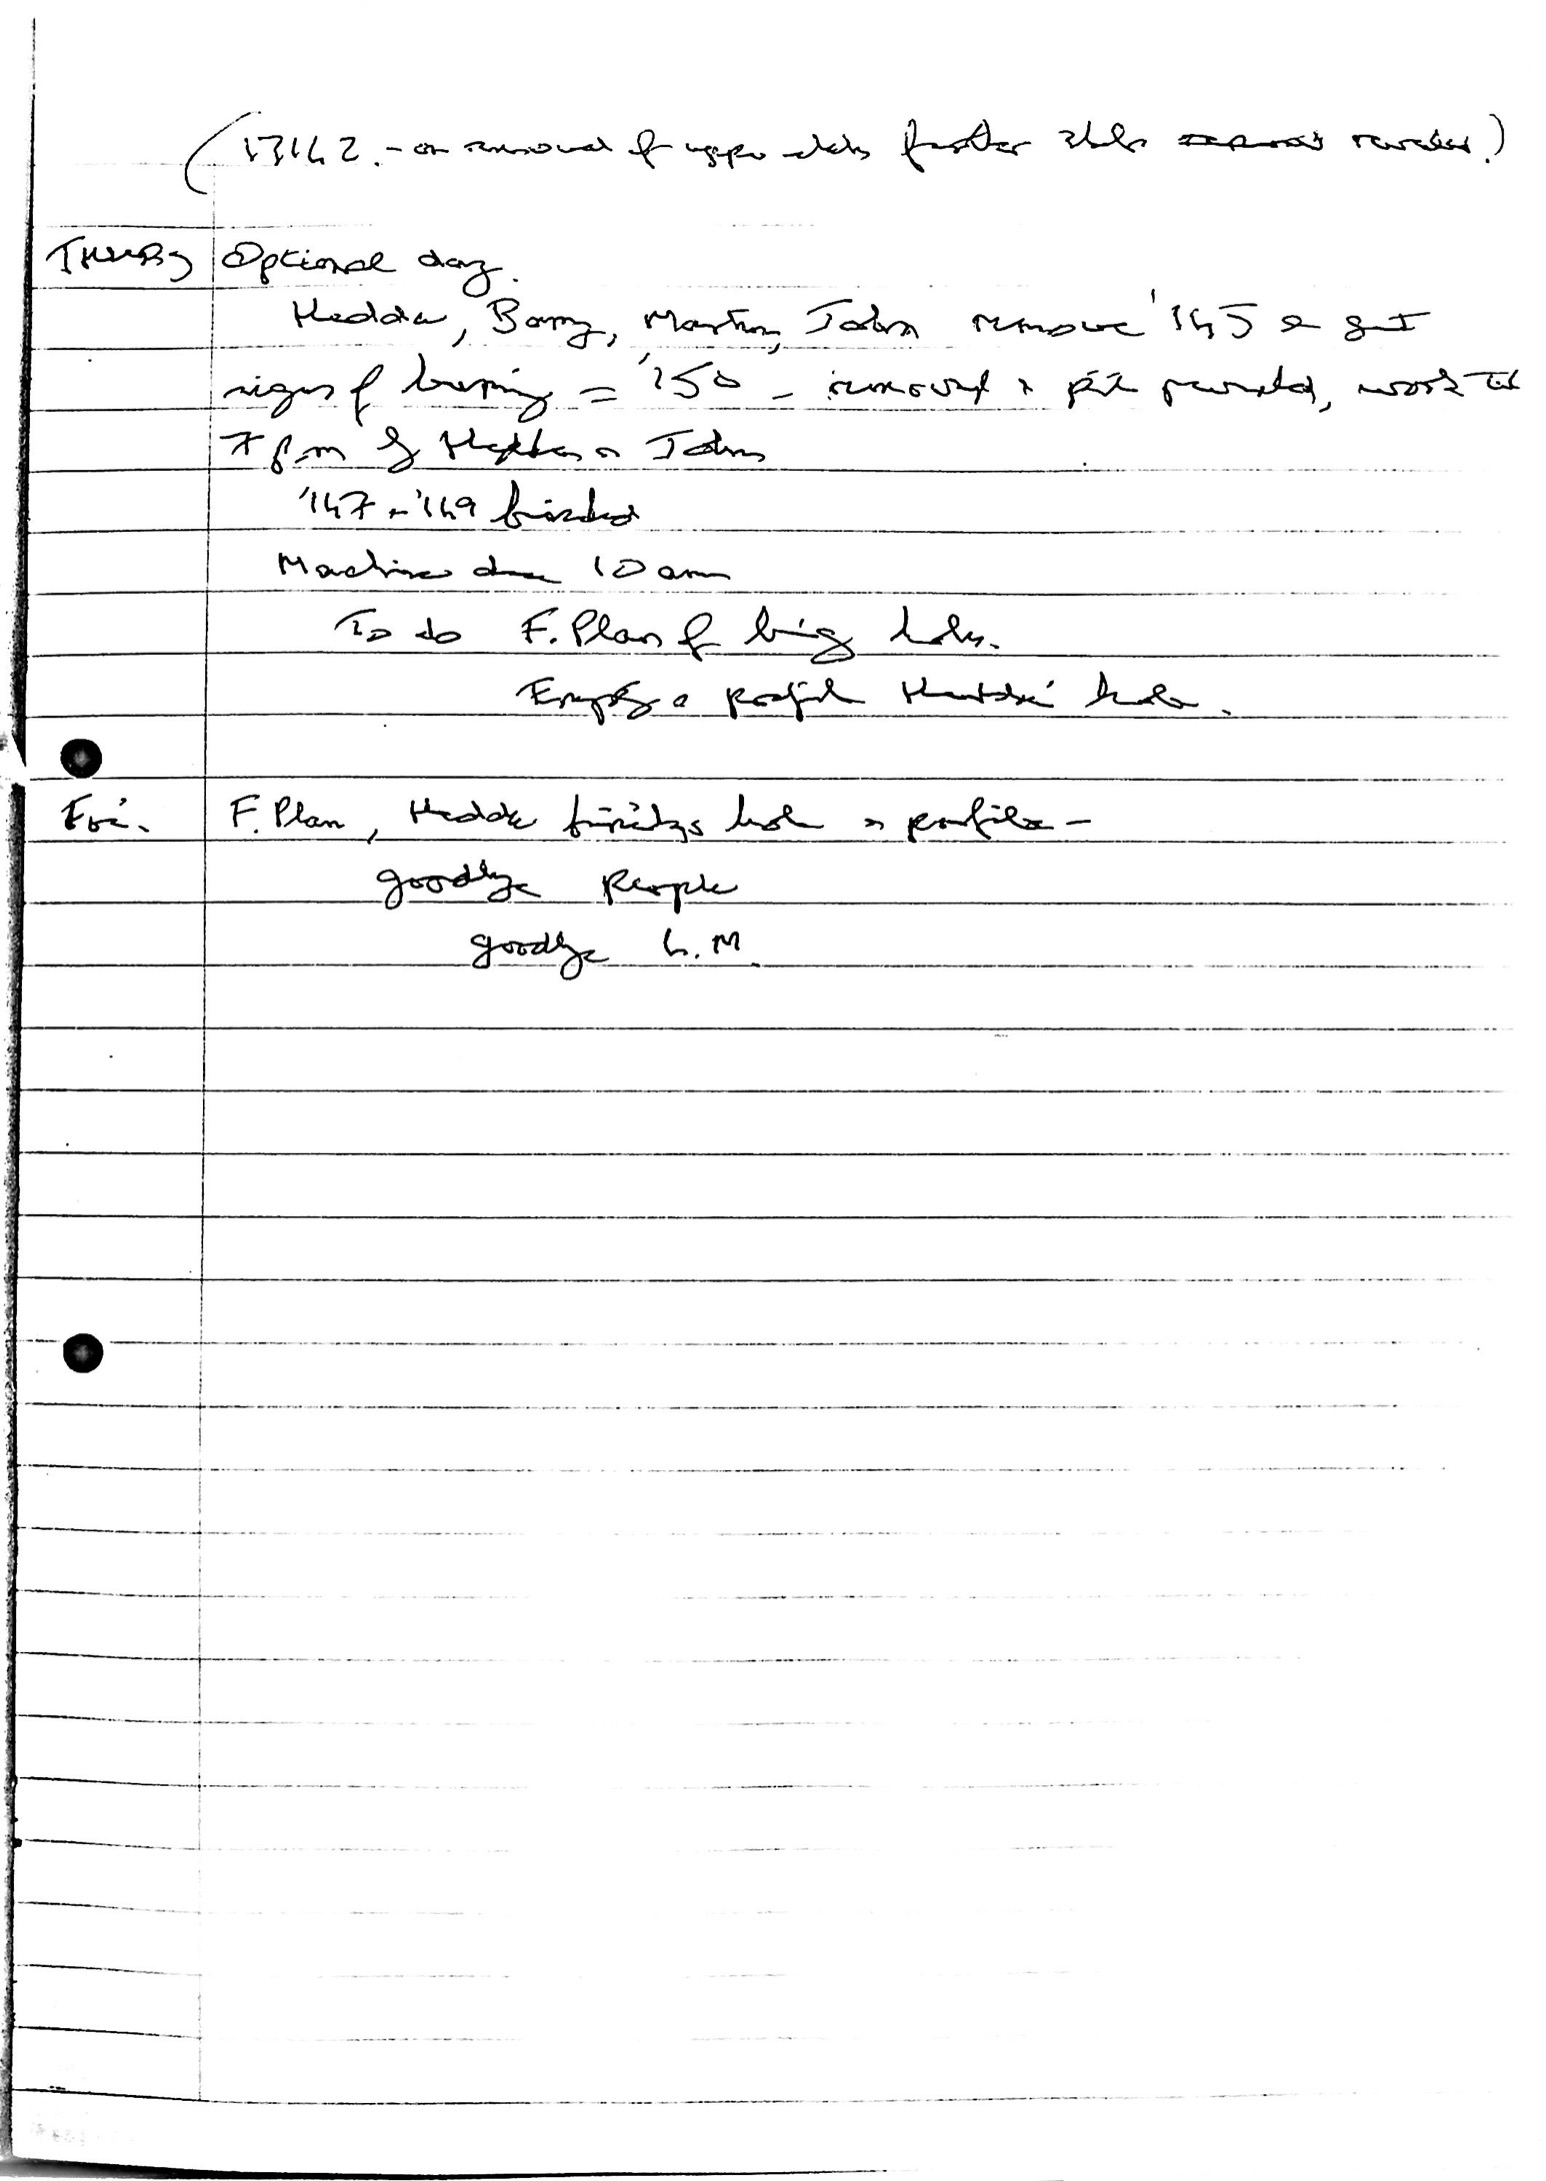 (13142. - on removal of upper slabs further slabs revealed.)
THURS Optional day.
Hedda, Barry, Martin, John remove '145 & get
signs of burning = '150 - removed & pit revealed, work till
7 p.m by Hedda & John
'147 - '149 finished
Machine due 10 am
To do F. Plan of big hole.
Empty & profile Hedda's hole.
Fri. F. Plan, Hedda finishes hole & profile -
goodbye People
goodbye L.M.